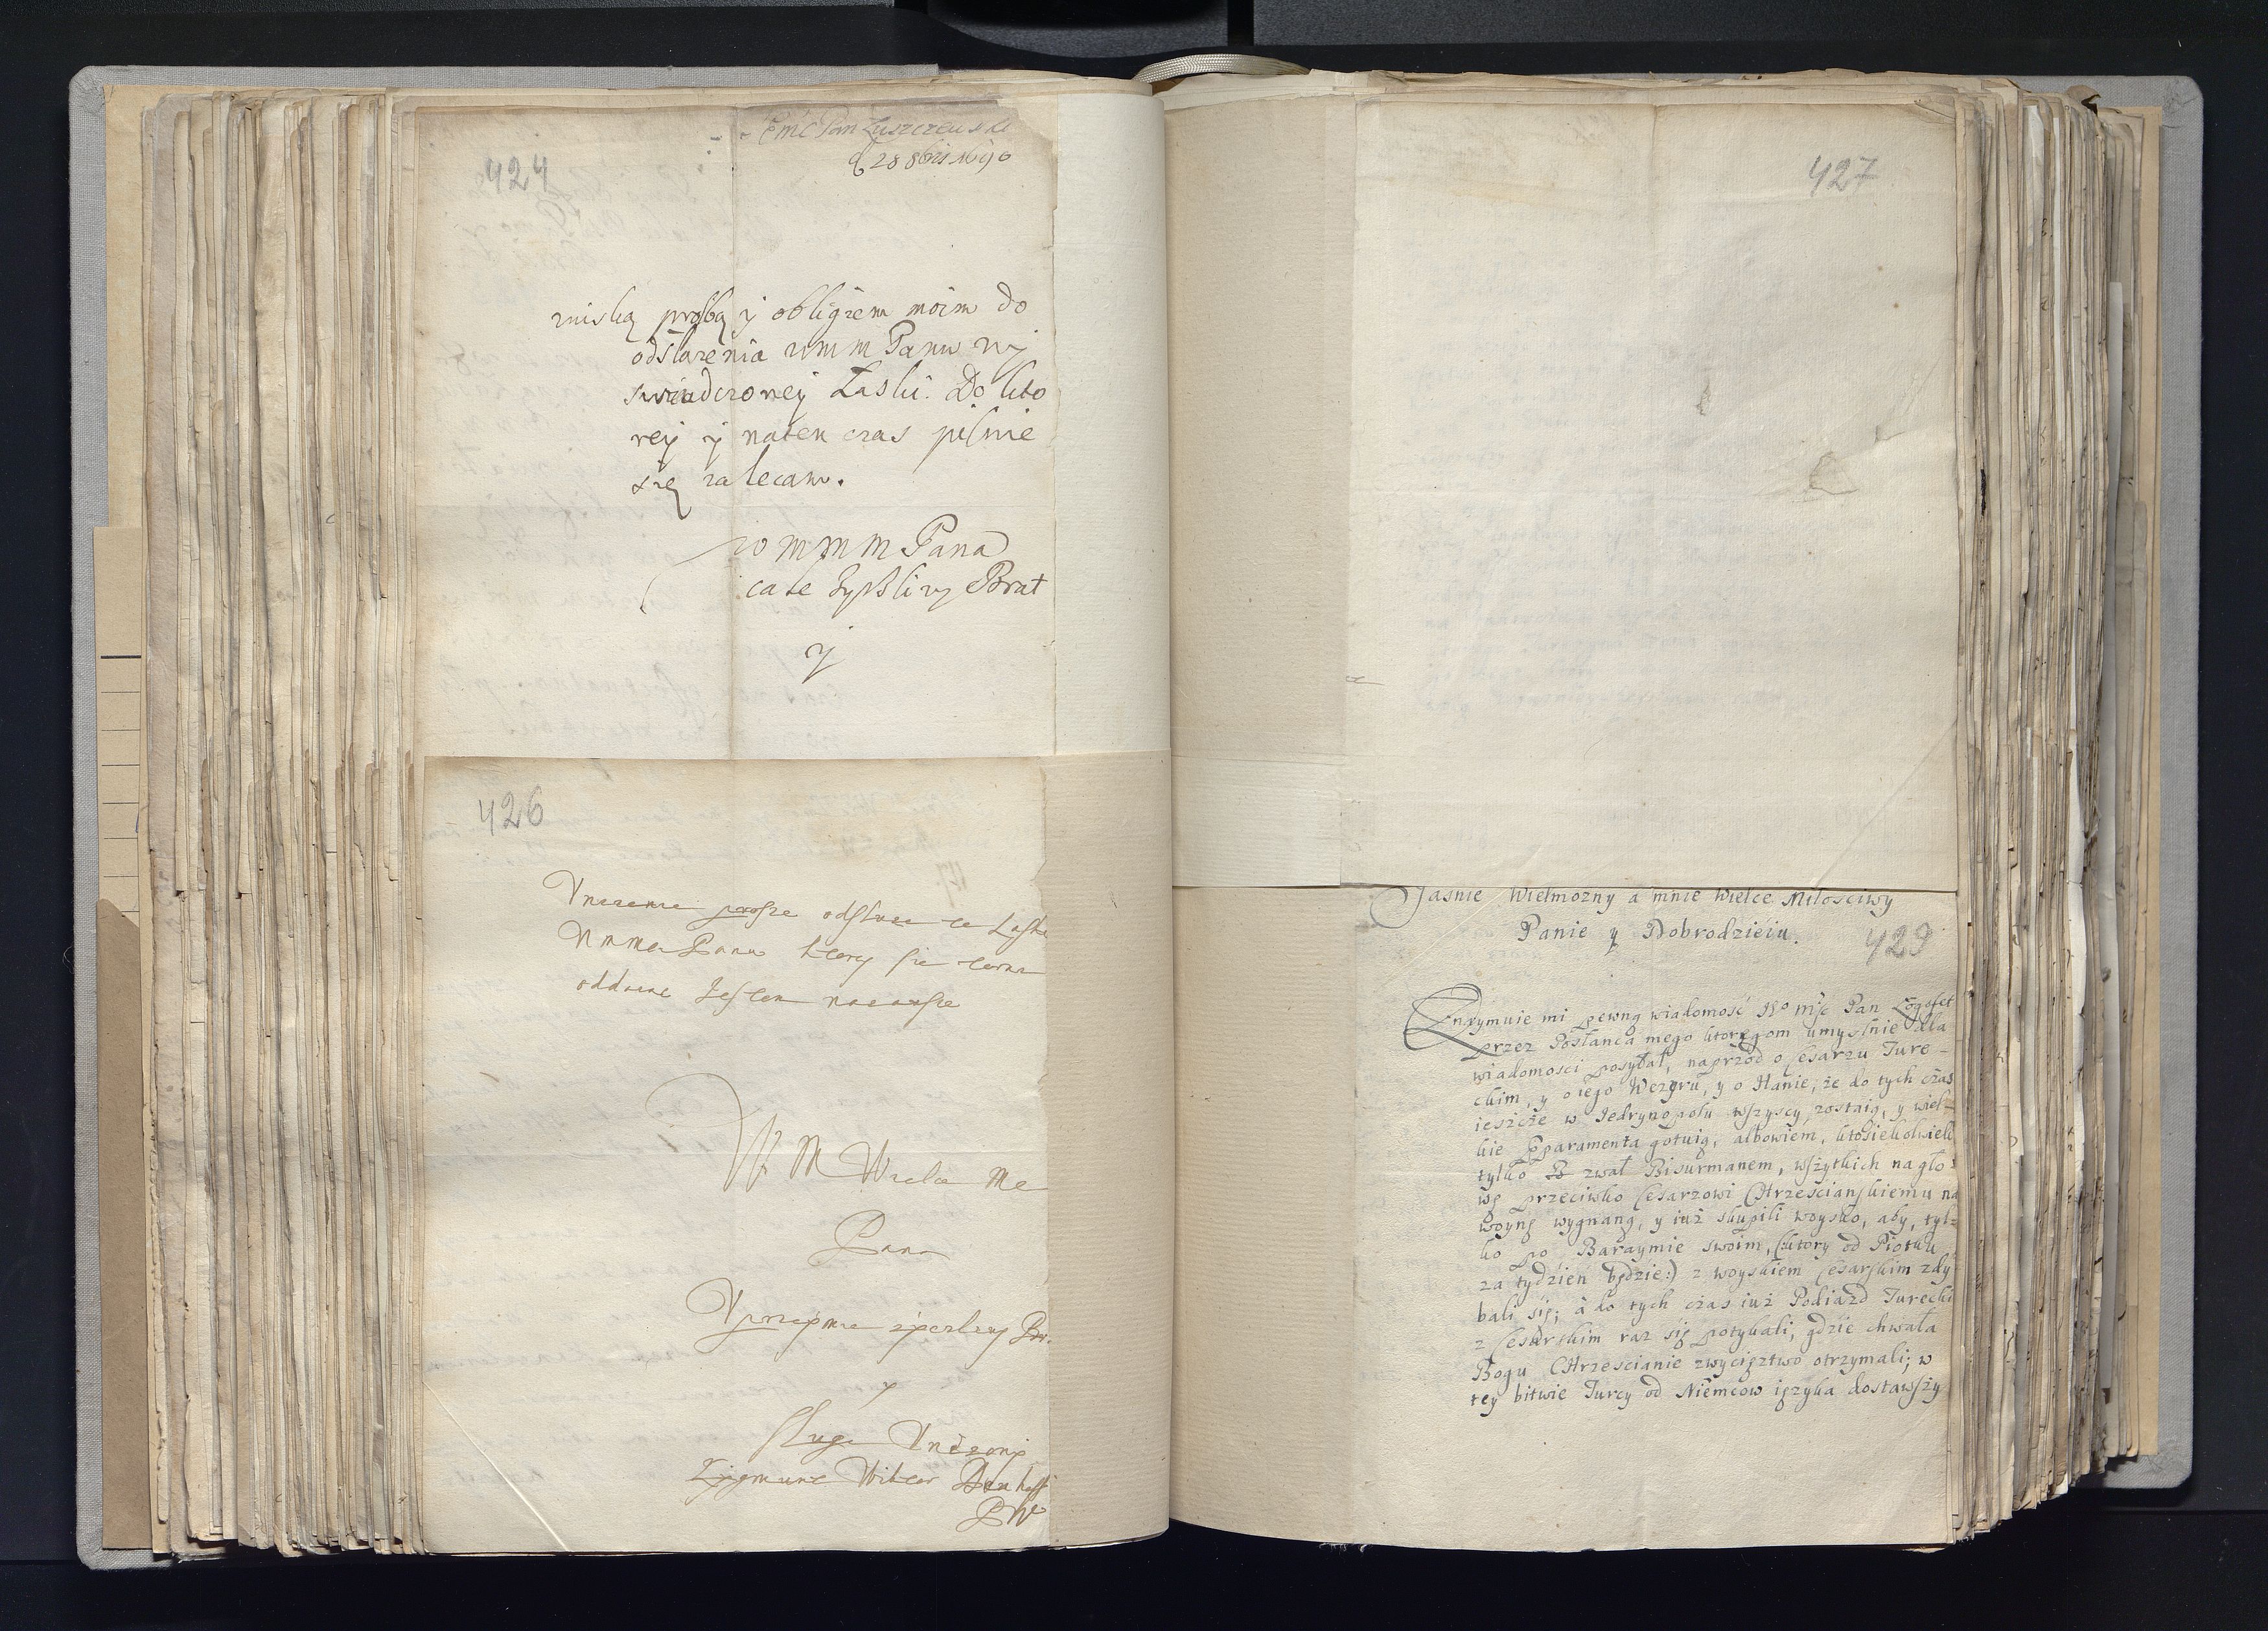 Jemć Pan Łuszczewski
28 8bris 1690
424
niską proźbą y obligiem moim do
odsłużenia wmm Panu wy
swiadczoney Łaski. Do kto
rey y naten czas pilnie
się zalecam.
WMMM Pana
cale życzliwy Brat
y
426
Uniżenie proszę odsłużę te Łaskę
Wmm Panu ktory się
oddaie Jestem na zawsze
W M Wielce Me
Pana
Uprzeymie życzliwy Br.
y
sługa Uniżony
Zygmunt Wiktor Denhoff
427
Jasnie Wielmozny a mnie Wielce Miłosciwy
Panie y Dobrodzieiu.
429
Enzymuie mi pewną wiadomość Jeo mść Pan Logofet
przez Posłanca mego ktoregom umyslnie dla
wiadomosci posyłał, naprzod o Cesarzu Ture-
ckim, y o iego Wezyru, y o Hanie, że do tych czas
ieszcze w Jedrynopolu wszyscy zostaią, y wiel-
kie Pparamenta gotuią, albowiem, ktosiekolwiek
tylko zwał Bisurmanem, wszytkich na gło-
wę przeciwko Cesarzowi Chrzescianskiemu na
woynę wygnaną, y iuż skupili woysko, aby, tyl-
ko po Baraymie swoim, (ktory od Piątku
za tydzien będzie:) z woyskiem Cesarskim zdy
bali się; á do tych czas iuż Podiazd Turecki
z Cesarskim raz się potykali, gdzie chwała
Bogu Chrzescianie zwycięztwo otrzymali; w
tey bitwie Turcy od Niemcow ięzyka dostawszy